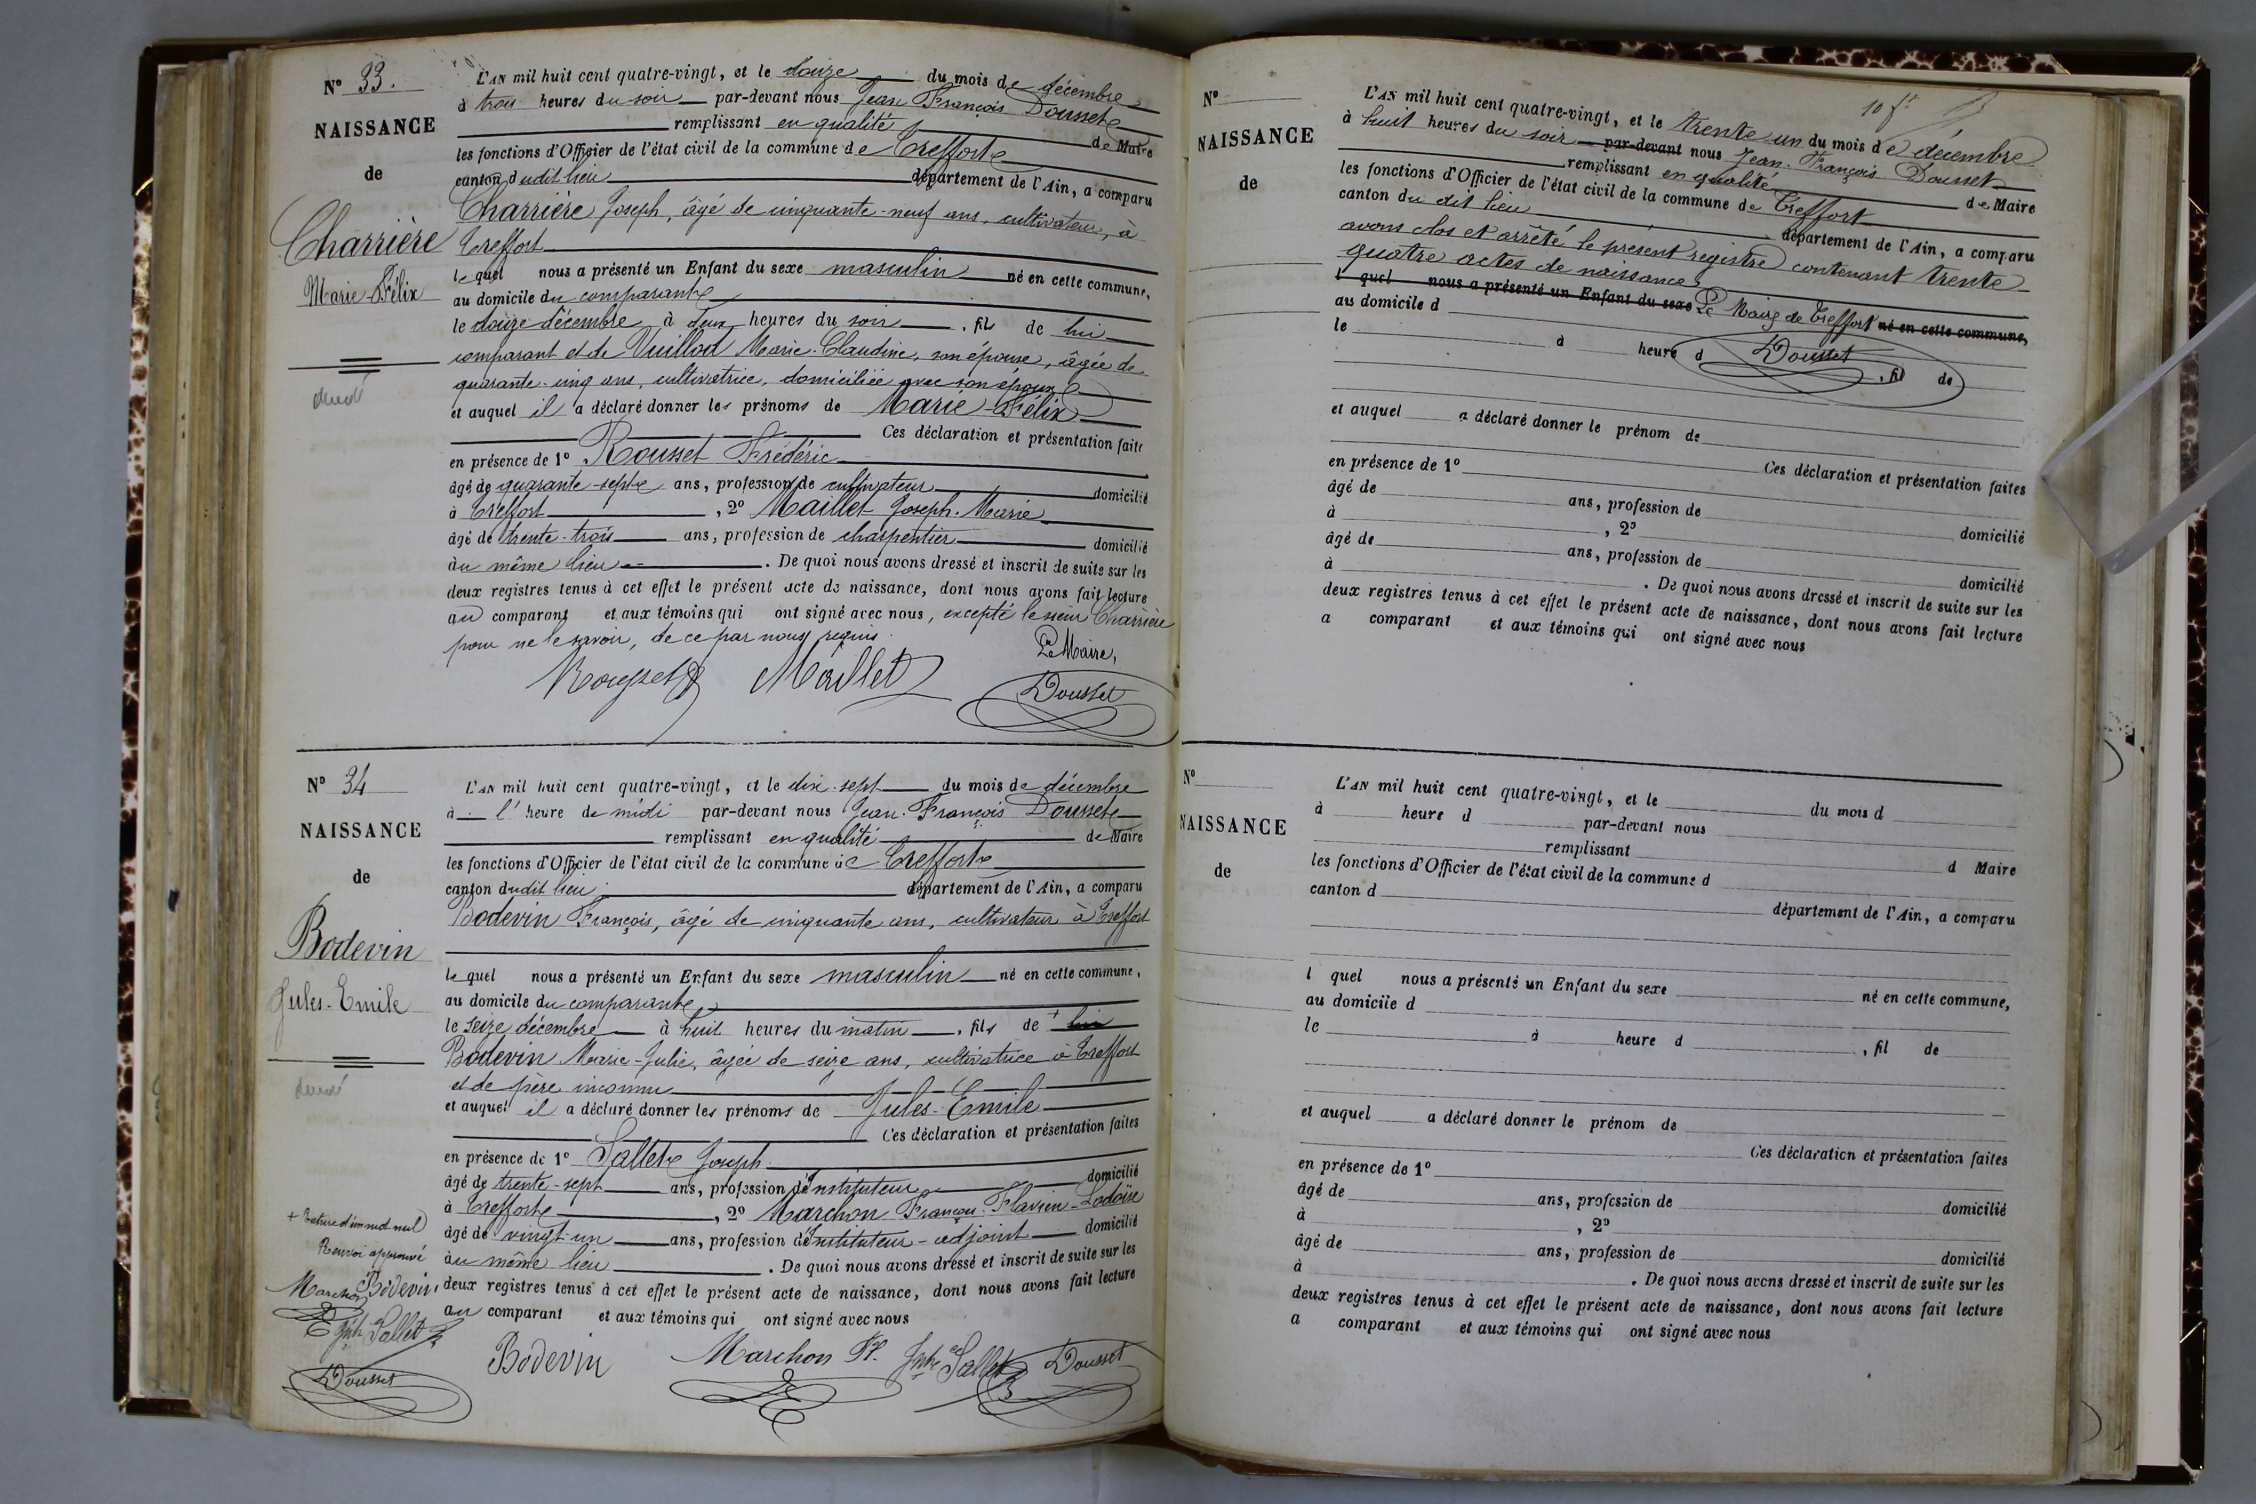 N° 33.
NAISSANCE
de
Charrière
Marie-Félix
L'AN mil huit cent quatre-vingt, et le douze du mois de décembre
à trois heures du soir par-devant nous Jean François Dousset
remplissant en qualité de Maire
les fonctions d'Officier de l'état civil de la commune de Treffort
canton dudit lieu département de l'Ain, a comparu
Charrière Joseph, âgé de cinquante-neuf ans, cultivateur, à
Treffort
lequel nous a présenté un Enfant du sexe masculin né en cette commune,
au domicile du comparant
le douze décembre à deux heures du soir, fils de lui
comparant et de Vuillod Marie-Claudine, son épouse, âgée de
quarante-cinq ans, cultivatrice, domiciliée avec son époux
et auquel il a déclaré donner les prénoms de Marie-Félix
Ces déclaration et présentation faite
en présence de 1° Rousset Frédéric
âgé de quarante-sept ans, profession de cultivateur domicilié
à Treffort, 2° Maillet Joseph-Marie
âgé de trente-trois ans, profession de charpentier domicilié
au même lieu. De quoi nous avons dressé et inscrit de suite sur les
deux registres tenus à cet effet le présent acte de naissance, dont nous avons fait lecture
au comparant et aux témoins qui ont signé avec nous, excepté le sieur Charrière
pour ne le savoir, de ce par nous requis.
Le Maire,
Rousset Maillet Dousset
N° 34
NAISSANCE
de
Bodevin
Jules-Emile
+ Rature d'un mot nul
Renvoi approuvé
Marchon Bodevin
Jph Sallet
Dousset
L'AN mil huit cent quatre-vingt, et le dix-sept du mois de décembre
à l'heure de midi par-devant nous Jean-François Dousset
remplissant en qualité de Maire
les fonctions d'Officier de l'état civil de la commune de Treffort
canton dudit lieu département de l'Ain, a comparu
Bodevin François, âgé de cinquante ans, cultivateur à Treffort
lequel nous a présenté un Enfant du sexe masculin né en cette commune,
au domicile du comparant
le seize décembre à huit heures du matin, fils de + lui
Bodevin Marie-Julie, âgée de seize ans, cultivatrice à Treffort
et de père inconnu
et auquel il a déclaré donner les prénoms de Jules-Emile
Ces déclaration et présentation faites
en présence de 1° Sallet Joseph
âgé de trente-sept ans, profession d'Instituteur domicilié
à Treffort, 2° Marchon François-Flavien-Lodoïse
âgé de vingt-un ans, profession d'Instituteur-adjoint domicilié
au même lieu. De quoi nous avons dressé et inscrit de suite sur les
deux registres tenus à cet effet le présent acte de naissance, dont nous avons fait lecture
au comparant et aux témoins qui ont signé avec nous
Bodevin Marchon Fs. Jph Sallet Dousset
N°
NAISSANCE
de
L'AN mil huit cent quatre-vingt, et le trente un du mois de décembre
à huit heures du soir par-devant nous Jean-François Dousset
remplissant en qualité de Maire
les fonctions d'Officier de l'état civil de la commune de Treffort
canton du dit lieu département de l'Ain, a comparu
avons clos et arrêté le présent registre contenant trente
quatre actes de naissance
l quel nous a présenté un Enfant du sexe Le Maire de Treffort né en cette commune,
au domicile d
le à heure d Dousset, fil de
et auquel a déclaré donner le prénom de
Ces déclaration et présentation faites
en présence de 1°
âgé de ans, profession de domicilié
à , 2°
âgé de ans, profession de domicilié
à . De quoi nous avons dressé et inscrit de suite sur les
deux registres tenus à cet effet le présent acte de naissance, dont nous avons fait lecture
a comparant et aux témoins qui ont signé avec nous
N°
NAISSANCE
de
L'AN mil huit cent quatre-vingt, et le du mois d
à heure d par-devant nous
remplissant d Maire
les fonctions d'Officier de l'état civil de la commune d
canton d département de l'Ain, a comparu
l quel nous a présenté un Enfant du sexe né en cette commune,
au domicile d
le à heure d , fil de
et auquel a déclaré donner le prénom de
Ces déclaration et présentation faites
en présence de 1°
âgé de ans, profession de domicilié
à , 2°
âgé de ans, profession de domicilié
à . De quoi nous avons dressé et inscrit de suite sur les
deux registres tenus à cet effet le présent acte de naissance, dont nous avons fait lecture
a comparant et aux témoins qui ont signé avec nous